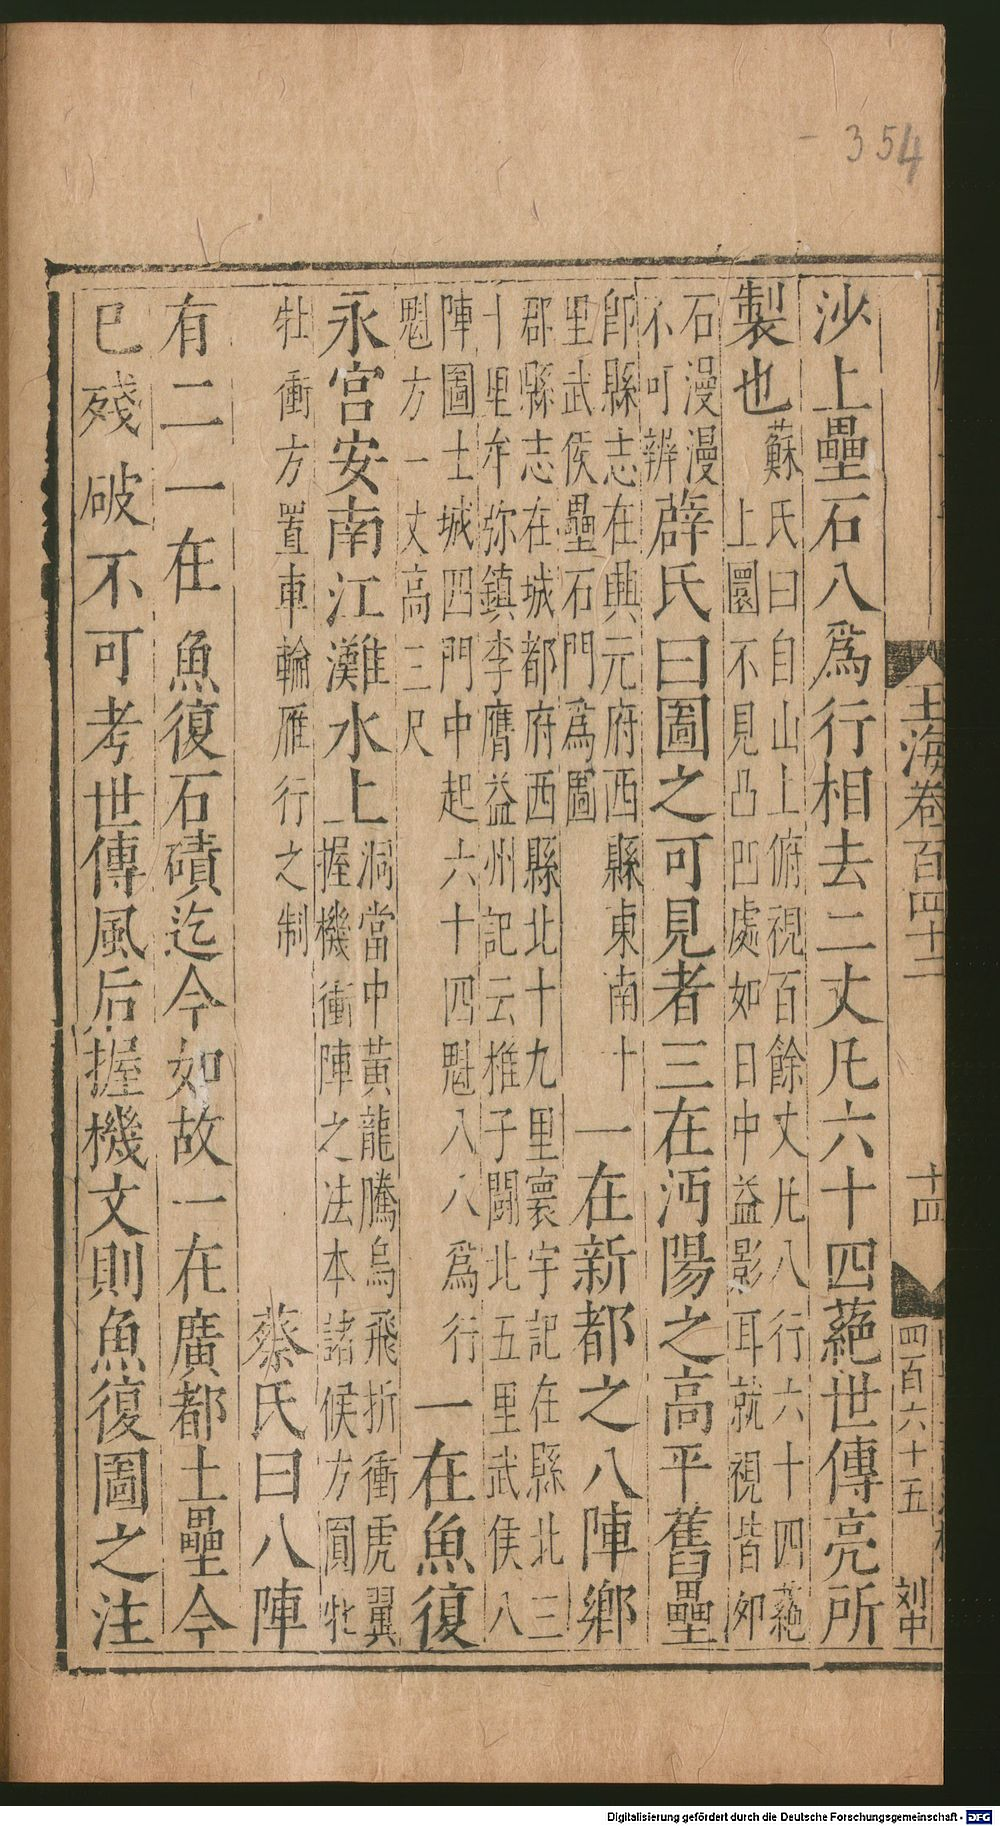 354
玉海卷百四十二
十四
四百六十五
刘中
沙上壘石八爲行相去二丈凡六十四蕝世傳亮所
製也
蘇氏曰自山上俯視百餘丈凡八行六十四蕝
上圜不見凸凹處如日中益影耳就視皆夘
石漫漫
不可辨
薛氏曰圖之可見者三在沔陽之高平舊壘
郎縣志在興元府西縣東南十
里武侯壘石門爲圖
一在新都之八陣鄉
郡縣志在城都府西縣北十九里寰宇記在縣北三
十里牟弥鎮李膺益州記云稚子闕北五里武侯八
陣圖土城四門中起六十四魁八八爲行
魁方一丈高三尺
一在魚復
永宫安南江灘水上
洞當中黃龍騰鳥飛折衝虎翼
握機衝陣之法本諸候方圓牝
牡衝方置車輪雁行之制
蔡氏曰八陣
有二一在魚復石磧迄今如故一在廣都土壘今
已殘破不可考世傳風后握機文則魚復圖之注
Digitalisierung gefördert durch die Deutsche Forschungsgemeinschaft - DFG